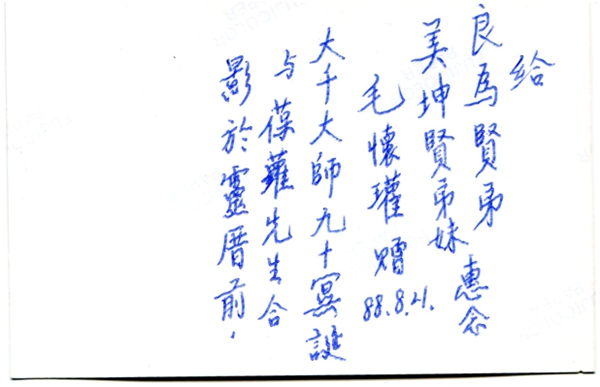 給
良為賢弟
美坤賢弟妹 惠念
毛懷瓘 贈 88.8.21.
大千大師九十冥誕
與葆蘿先生合
影於靈厝前.